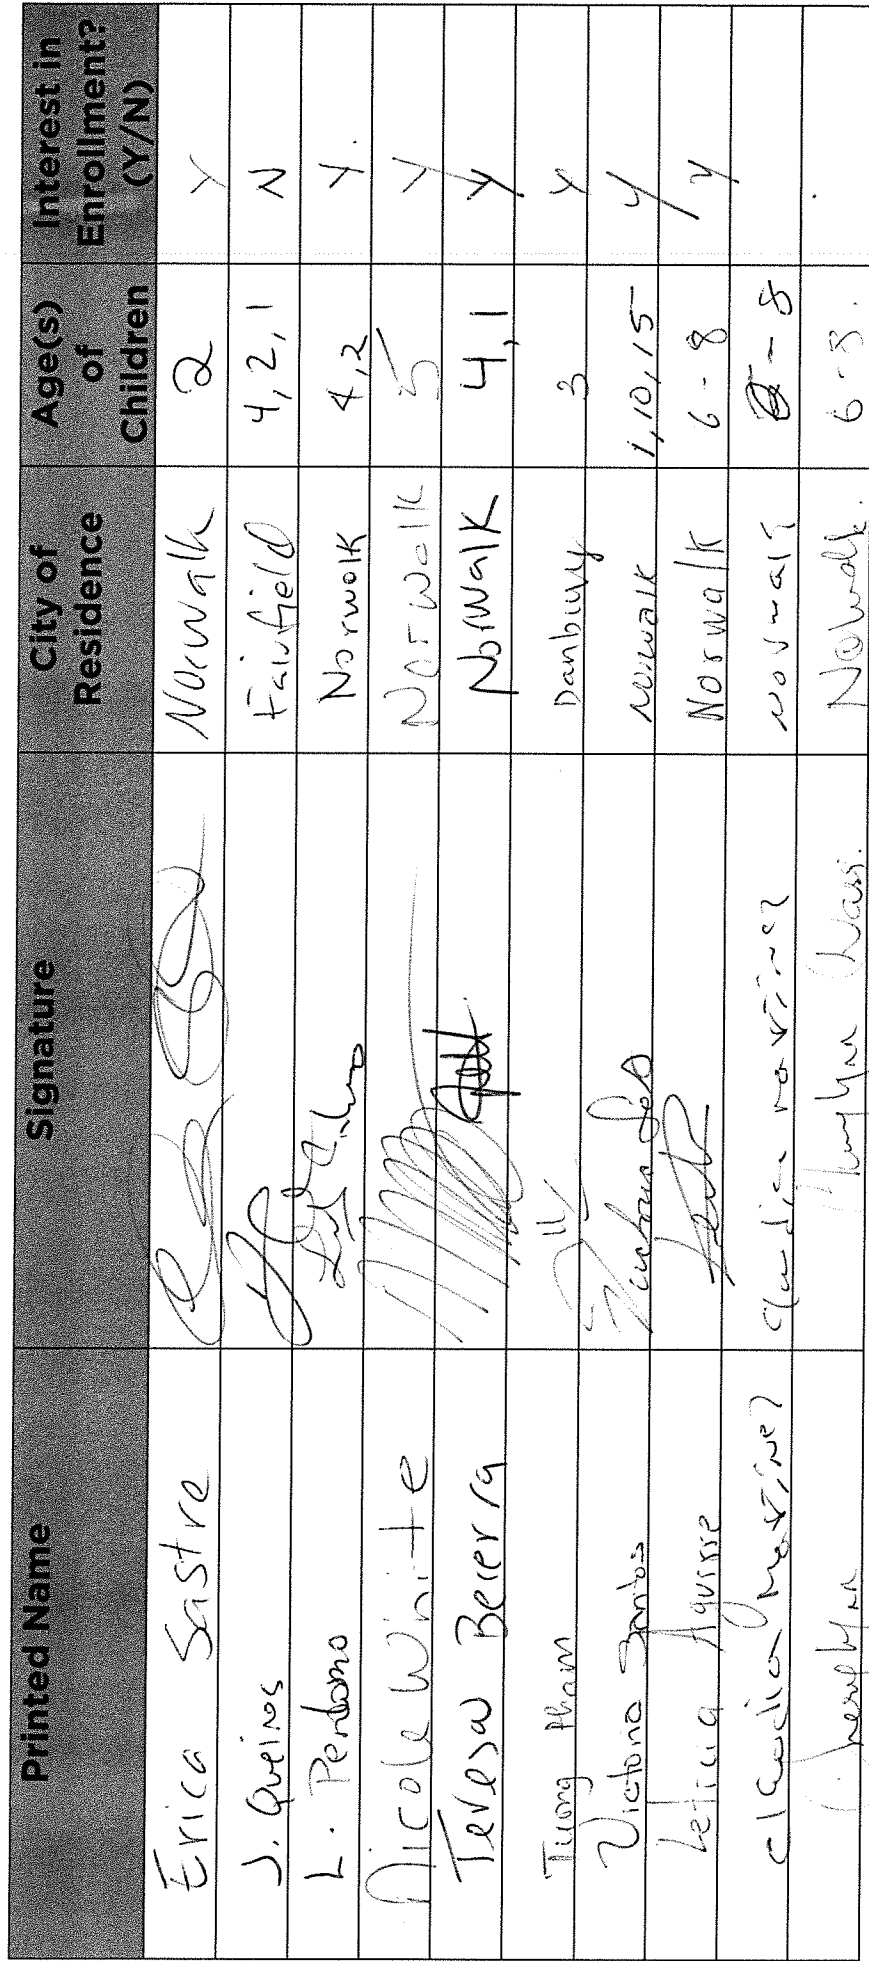 Printed Name Signature City of Residence Age(s) of Children Interest in Enrollment? (Y/N)
Erica Sastre Norwalk 2 Y
J. Queiros Fairfield 4, 2, 1 N
L. Perdomo Norwalk 4,2 Y.
Nicole White Norwalk 5 Y
Teresa Becerra Norwalk 4,1 Y
Truong Pham Danbury 3 Y
Victoria Santos Norwalk 1, 10, 15 Y
Leticia Aguirre Norwalk 6-8 Y
claudia Martinez claudia martinez Norwalk - 8
6-3.